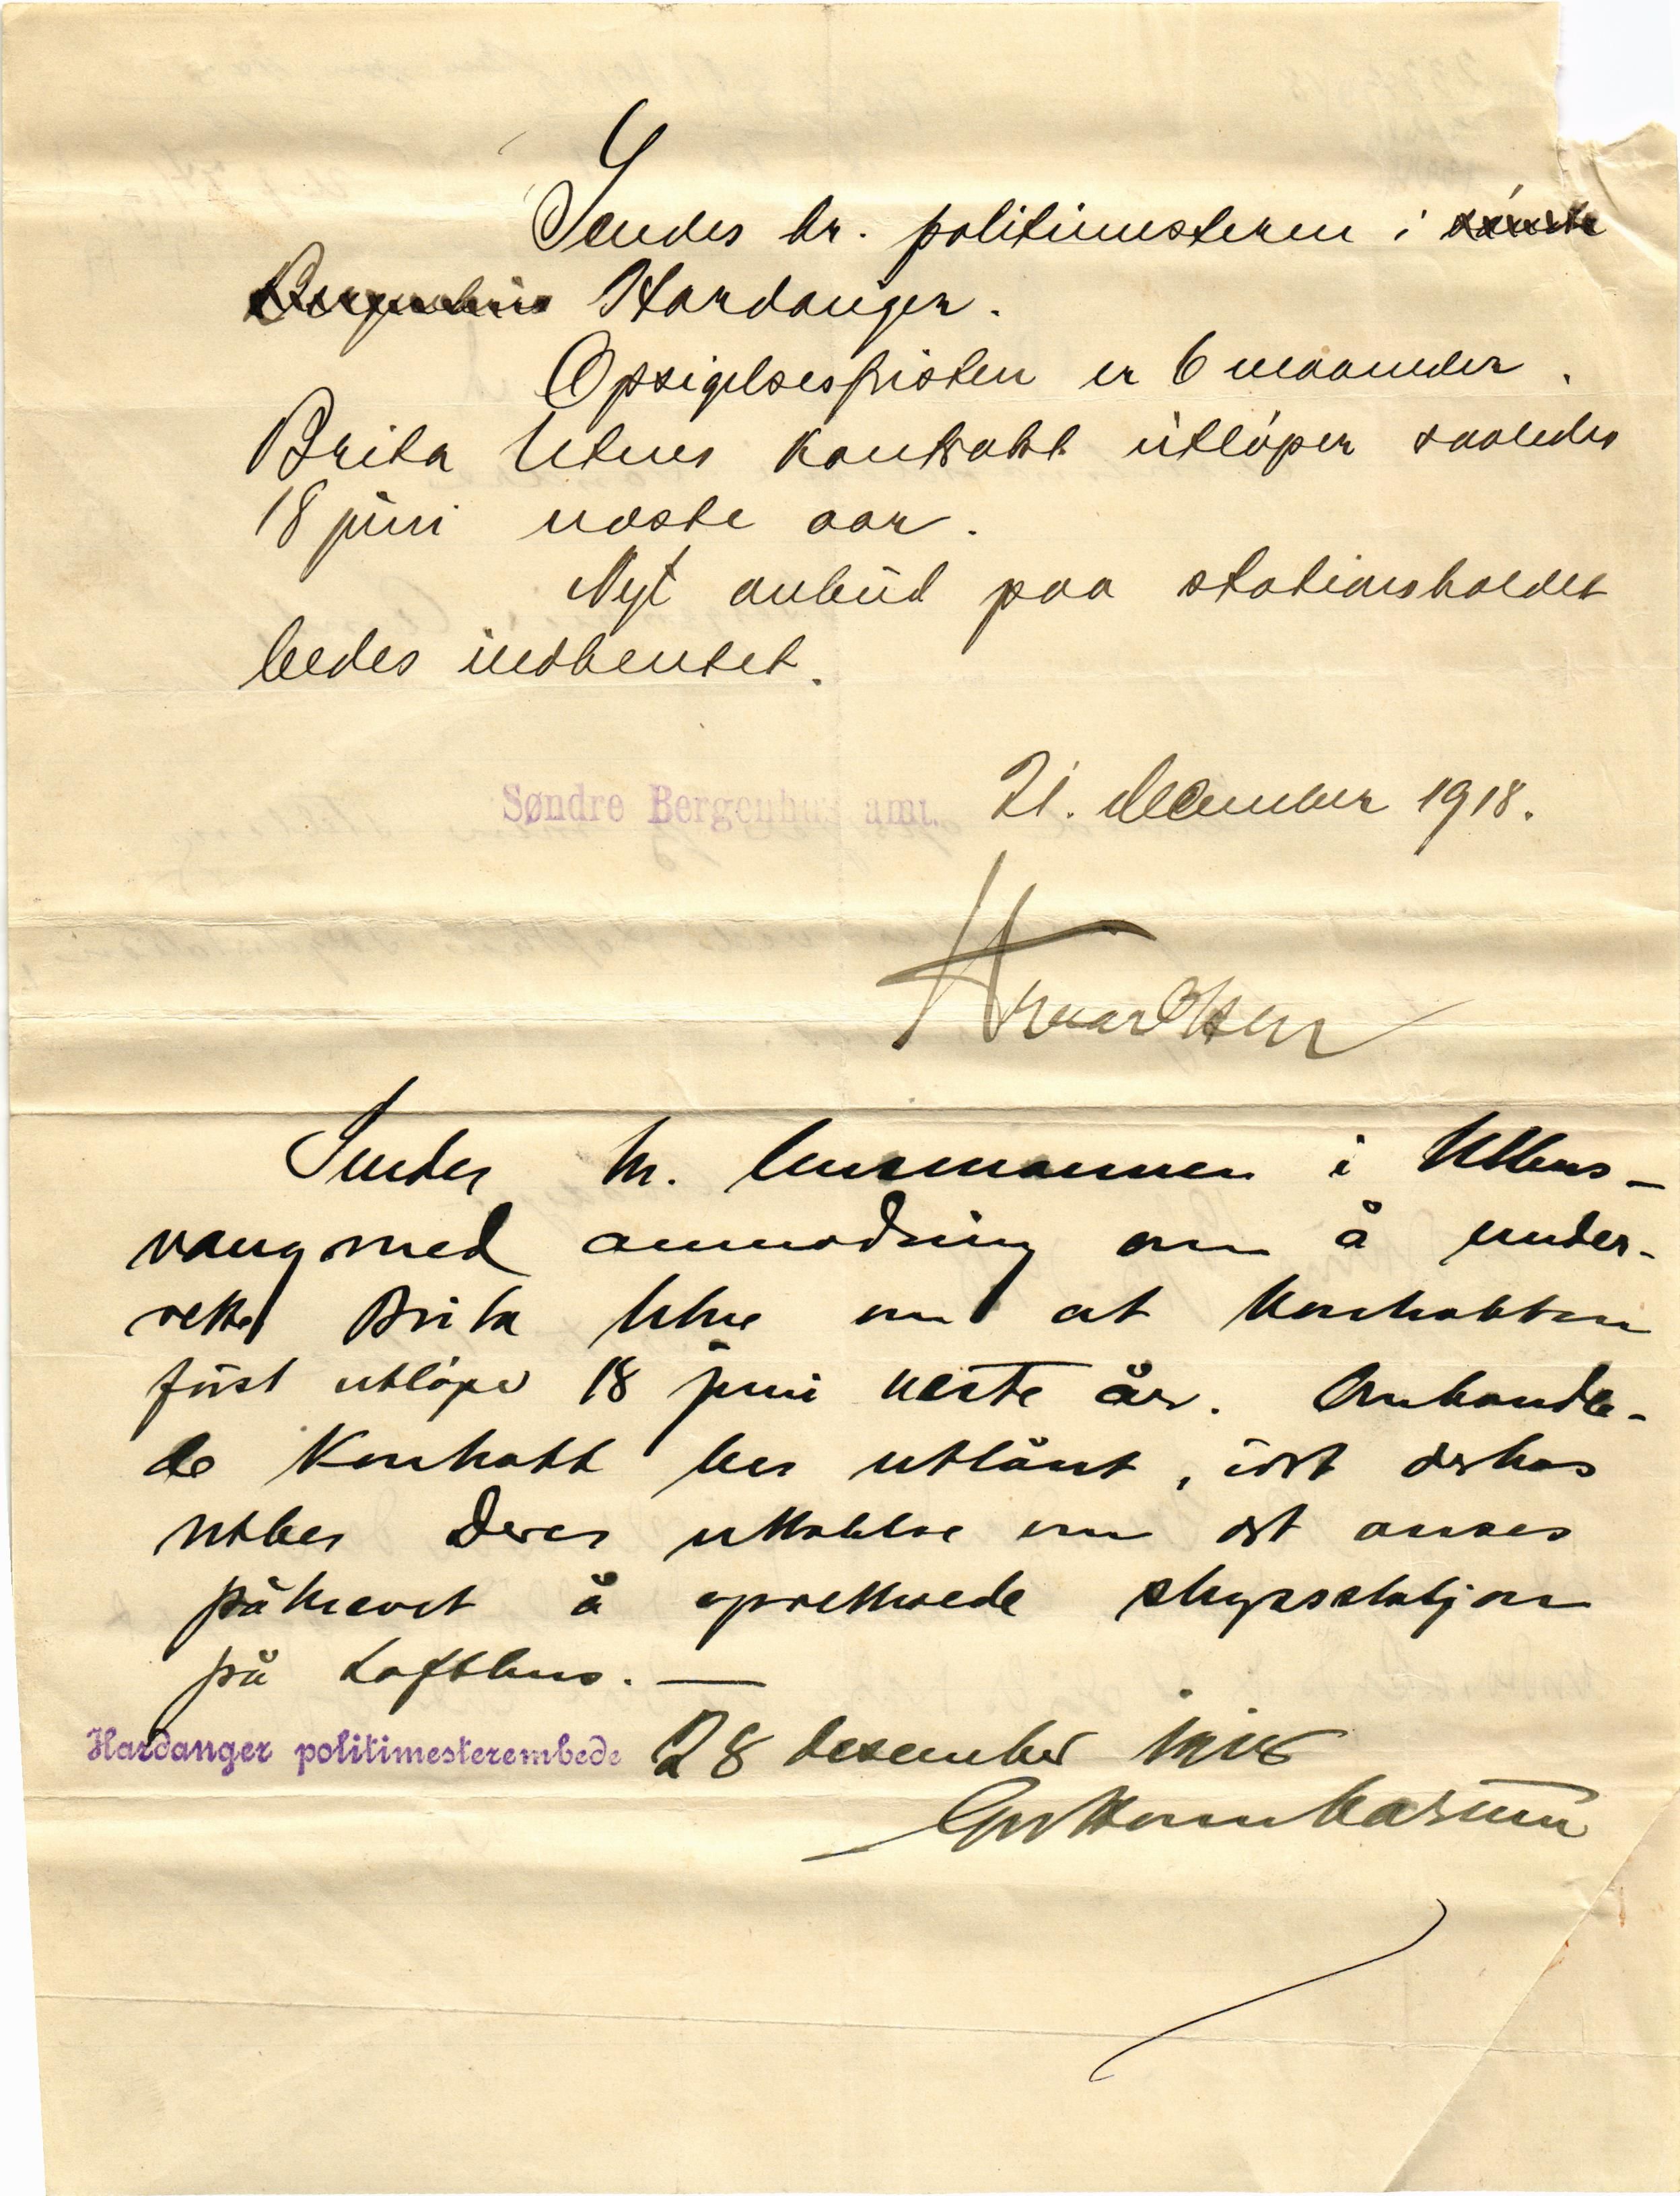 Sendes hr. politimesteren i søndre
Bergenhus Hardanger.
Opsigelsesfristen er 6 maaneder.
Brita Utnes kontrakt utløper saaledes
18 juni næste aar.
Nyt anbud paa stationsholdet
bedes indhentet.
Søndre Bergenhus amt. 21. december 1918.
Sendes hr. lensmannen i Ullens-
vang med anmodning om å under-
rette Brita Utne om at kontrakten
først utløper 18 juni neste år. Omhandle-
de kontrakt bes utlånt, idet derhos
utbes Deres uttalelse om det anses
påkrevet å oprettholde skysstasjon
på Lofthus. —
Hardanger politimesterembede 28 desember 1918